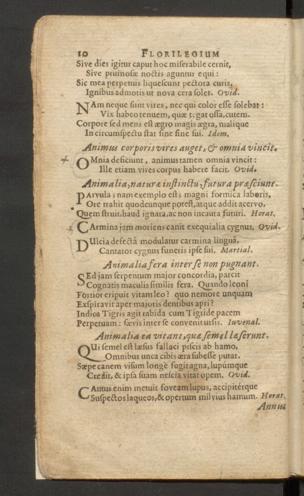 10 FLORILEGIUM
Sive dies igitur caput hoc miserabile cernit,
Sive pruinosæ noctis aguntur equi:
Sic mea perpetuis liquescunt pectora curis,
Ignibus admotis ut nova cera solet. Ovid.
NAm neque sunt vires, nec qui color esse solebat:
Vix habeo tenuem, quæ tegat ossa, cutem.
Corpore sed mens est ægro magis ægra, malique
In circumspectu stat sine fine sui. Idem.
Animus corporis vires auget, & omnia vincit.
OMnia deficiunt, animus tamen omnia vincit:
Ille etiam vires corpus habere facit. Ovid.
Animalia, naturæ instinctu, futura præsciunt.
PArvula, nam exemplo est, magni formica laboris,
Ore trahit quodcunque potest, atque addit acervo,
Quem struit, haud ignara, ac non incauta futuri. Horat.
CArmina jam moriens canit exequialia cygnus, Ovid.
DUlcia defectâ modulatur carmina linguâ,
Cantator cygnus funeris ipse sui. Martial.
Animalia fera inter se non pugnant.
SEd jam serpentum major concordia, parcit
Cognatis maculis similis fera. Quando leoni
Fortior eripuit vitam leo? quo nemore unquam
Exspiravit aper majoris dentibus apri?
Indica Tigris agit rabida cum Tigride pacem
Perpetuam: sævis inter se convenit ursis. Iuvenal.
Animalia ea vitant, quæ semel læserunt.
QUi semel est læsus fallaci piscis ab hamo,
Omnibus unca cibis æra subesse putat.
Sæpe canem visum longè fugit agna, lupúmque
Credit, & ipsa suam nescia vitat opem. Ovid.
CAutus enim metuit foveam lupus, accipitérque
Suspectos laqueos, & opertum milvius hamum. Horat.
Annus